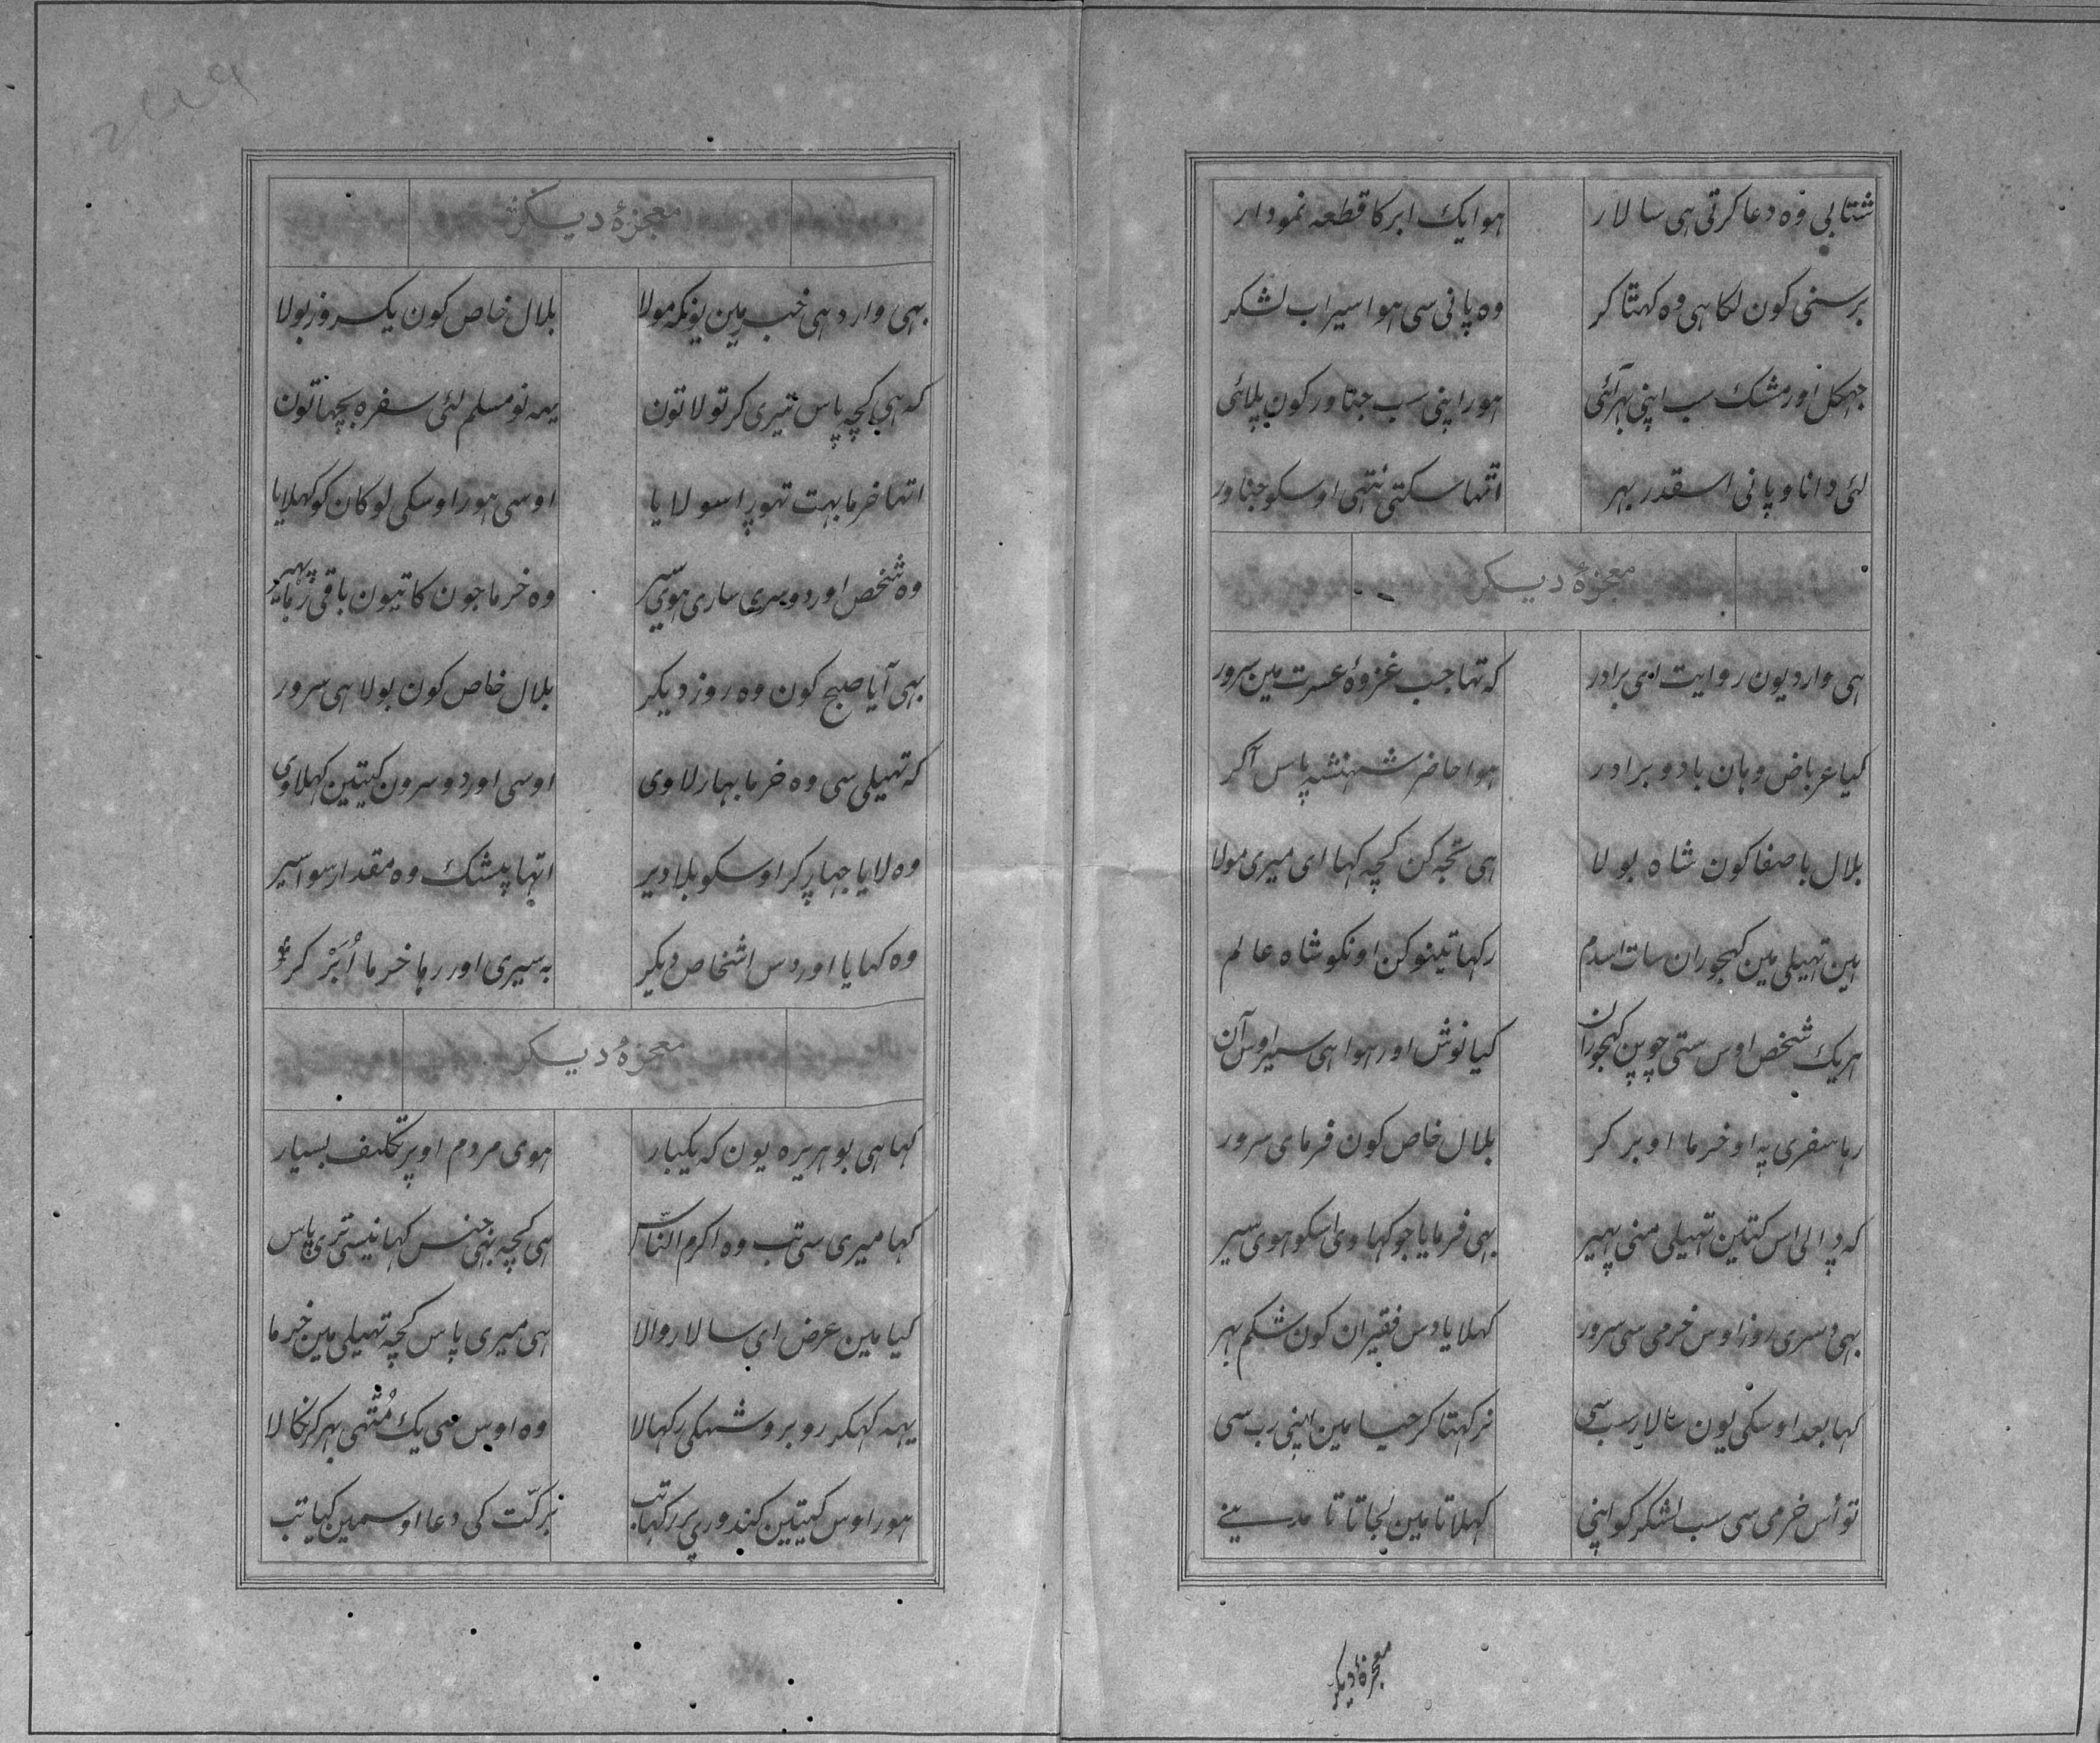 شتابی وہ دعا کرتی ہی سالار ہوا یک ابر کا قطعہ نمودار
برسنی کون لکا ہی وہ کہتا کر وہ پانی سی ہوا سیراب لشکر
جہکل اور مشک سب اپنی بہر آئی ہور اپنی سب جناور کون پلائی
لئی دانا و پانی اسقدر بہر اتہا سکتی نتہی اوسکو جناور
معجزۂ دیکر
ہی وارد یون روایت ای برادر کہ تہا جب غزوۂ عسرت مین سرور
کیا عرباض وہان با دو برادر ہوا حاضر شہنشہ پاس آکر
بلال باصفا کون شاہ بولا ہی تجہ کن کچہ کہا ای میری مولا
ہین تہیلی مین کہجوران سات اسدم رکہا تینو کن اونکو شاہ عالم
ہریک شخص اوس ستی چوپن کہجوران کیا نوش اور ہوا ہی سیر اوس آن
رہا سفری پہ او خرما اوبر کر بلال خاص کون فرمای سرور
کہ ڈالی اس کتین تہیلی منی پہیر بہی فرمایا جو کہاوی اسکو ہوی سیر
بہی دسری روز اوس خرمی سی سرور کہلایا دس فقیران کون شکم بہر
کہا بعد اوسکی یون سالار سب سی نرکہتا کر حیا مین اپنی رب سی
تو اُس خرمی سی سب لشکر کو اپنی کہلاتا مین لجاتا تا مدینے
معجزۂ دیکر
معجزۂ دیکر
بہی وارد ہی خبر مین یونکہ مولا بلال خاص کون یکروز بولا
کہ ہی کچہ پاس تیری کر تو لا تون یہہ نو مسلم لئی سفرہ بچہا تون
اتہا خرما بہت تہورا سو لایا اوسی ہور اوسکی لوکان کو کہلایا
وہ شخص اور دوسری ساری ہوی سیر وہ خرما جون کا تیون باقی رہا پہیر
بہی آیا صبح کون وہ روز دیکر بلال خاص کون بولا ہی سرور
کہ تہیلی سی وہ خرما بہار لاوی اوسی اور دوسرون کیتین کہلاوی
وہ لایا جہار کر اوسکو بلا دیر اتہا پیشک وہ مقدار سو اسیر
وہ کہایا اور دس اشخاص دیکر بہ سیری اور رہا خرما اُبَرْ کر
معجزۂ دیکر
کہا ہی بو ہریرہ یون کہ یکبار ہوی مردم اوپر تکلیف بسیار
کہا میری ستی تب وہ اکرم الناس ہی کچہ بہی جنس کہانیستی تری پاس
کیا مین عرض ای سالار والا ہی میری پاس کچہ تہیلی مین خرما
یہہ کہکر روبرو شہکی رکہا لا وہ اوس می یک مُتہی بہر کر نکالا
ہور اوس کیتین کندوری پر رکہا تب برکّت کی دعا اوسمین کیا تب